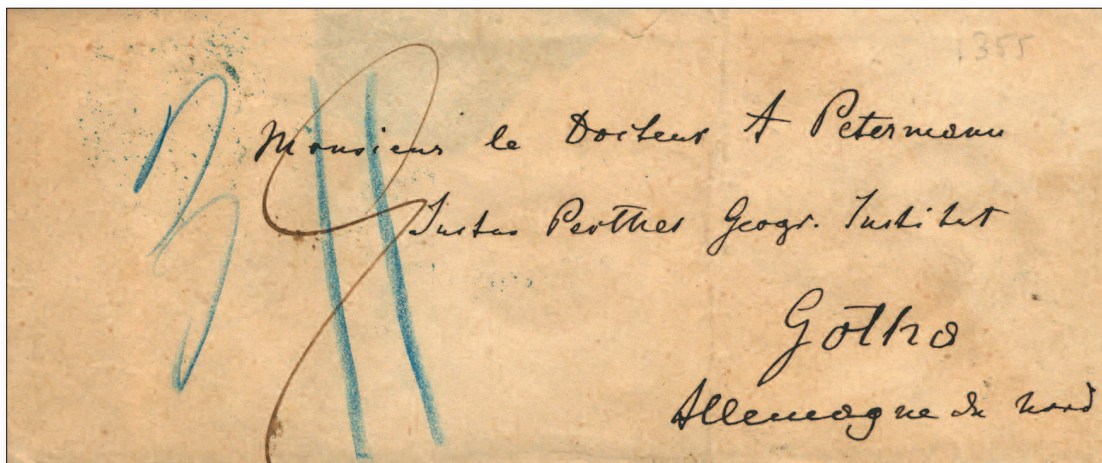 1355
Monsieur le Docteur A Petermann
Justus Perthes Geogr. Institut
Gotha
Allemagne du nord